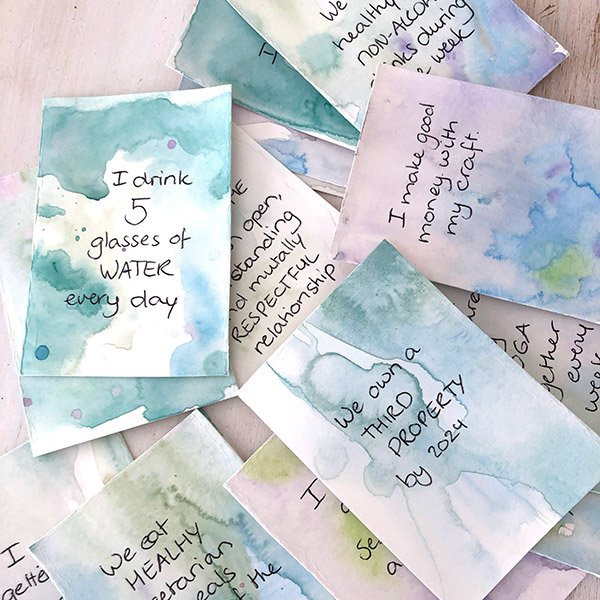 I
We
healthy
NON-ALCO
nks during
week
I make good
money with
my craft.
I drink
5
glasses of
WATER
every day
open,
standing
nd mutually
RESPECTFUL
relationship
OGA
gether
every
week
We own a
THIRD
PROPERTY
by 2024
I
a
I
We eat
HEALHY
etarian
eals
the